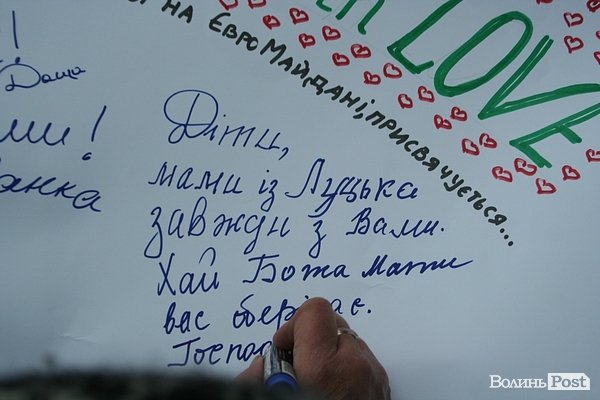 LOVE
НА ЄВРОМАЙДАНІ, ПРИСВЯЧУЄТЬСЯ...
!
Даша
ми!
Діти,
мами із Луцька
завжди з Вами.
Хай Божа Мати
вас обері ає.
Госпо
ВолиньPost